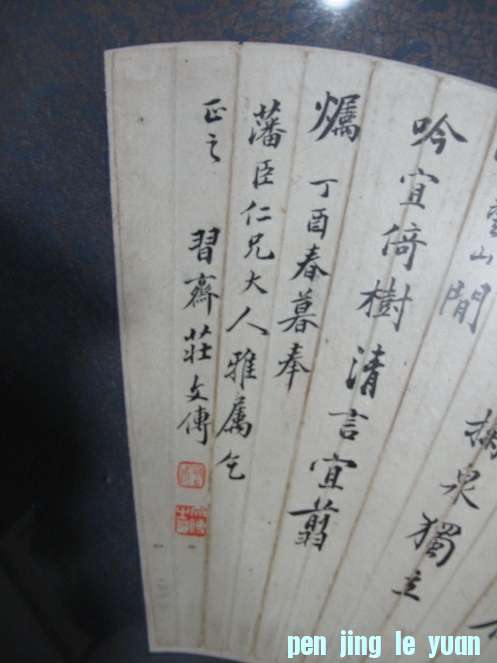 山閒 泉獨立
吟宜倚樹清言宜翦
爥 丁酉春暮奉
藩臣仁兄大人雅属乞
正之 習齋莊文傳
pen jing le yuan